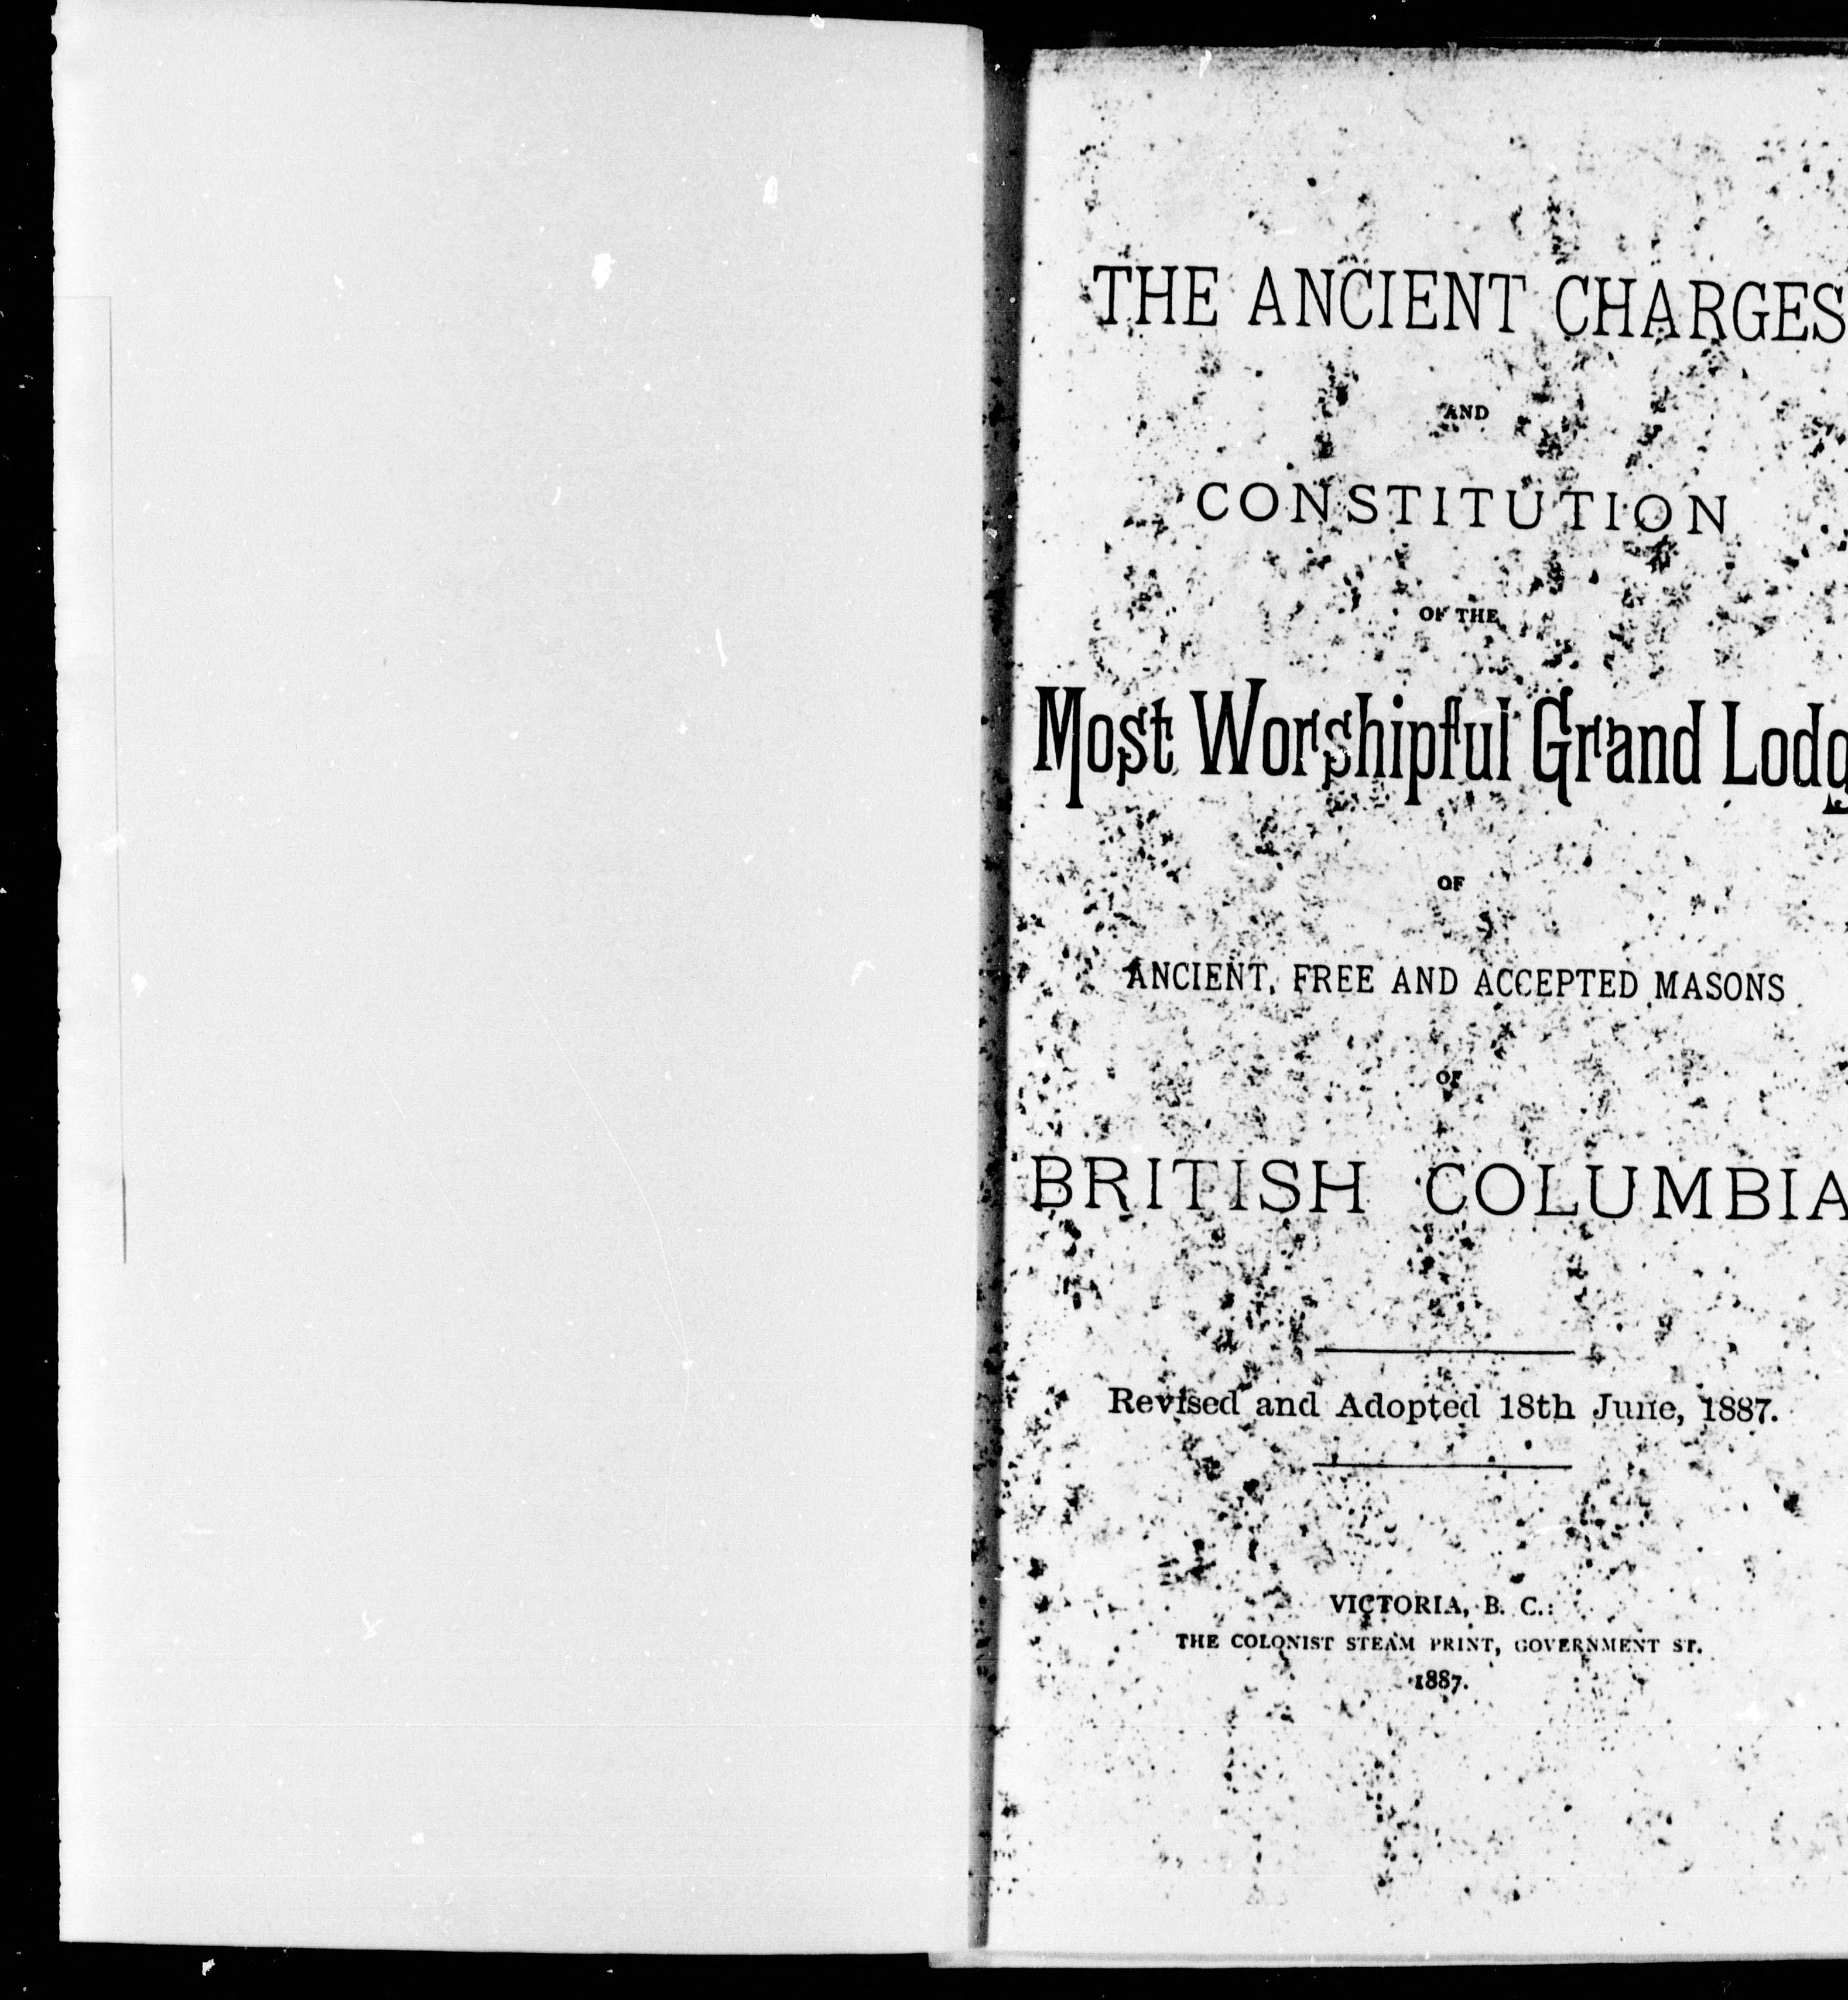 THE ANCIENT CHARGES
AND
CONSTITUTION
OF THE
Most Worshipful Grand Lodg
OF
ANCIENT, FREE AND ACCEPTED MASONS
OF
BRITISH COLUMBIA
Revised and Adopted 18th June, 1887.
VICTORIA, B. C.:
THE COLONIST STEAM PRINT, GOVERNMENT ST.
1887.